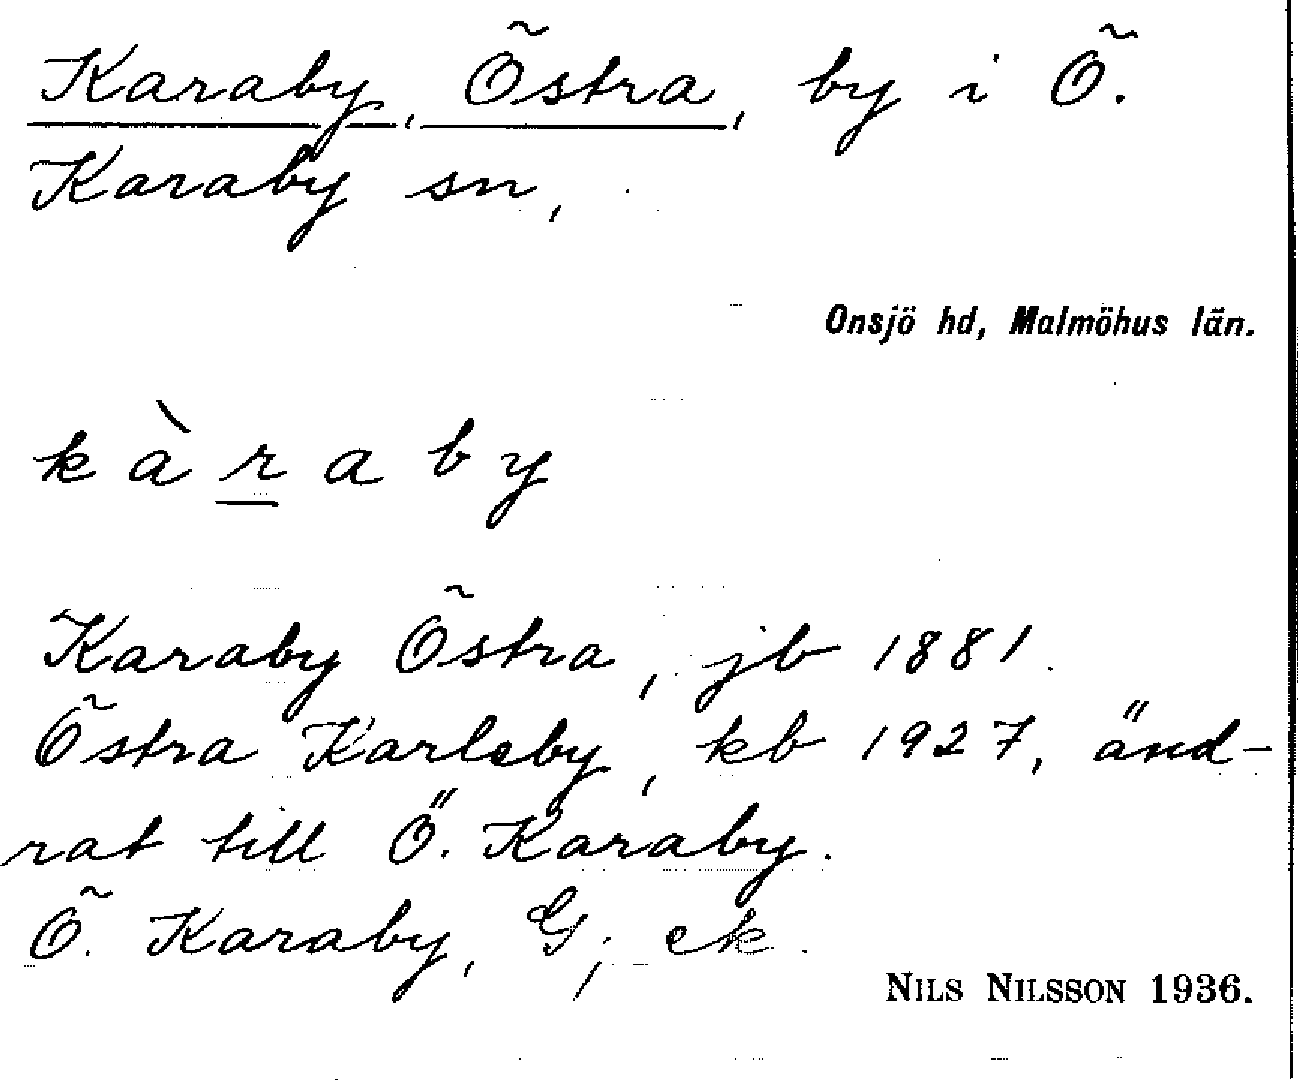 Karaby, Östra, by i Ö.
Karaby sn,
Onsjö hd, Malmöhus län.
kàraby
Karaby Östra, jb 1881.
Östra Karleby, kb 1927, änd-
rat till Ö. Karaby.
Ö. Karaby, G; ek.
NILS NILSSON 1936.